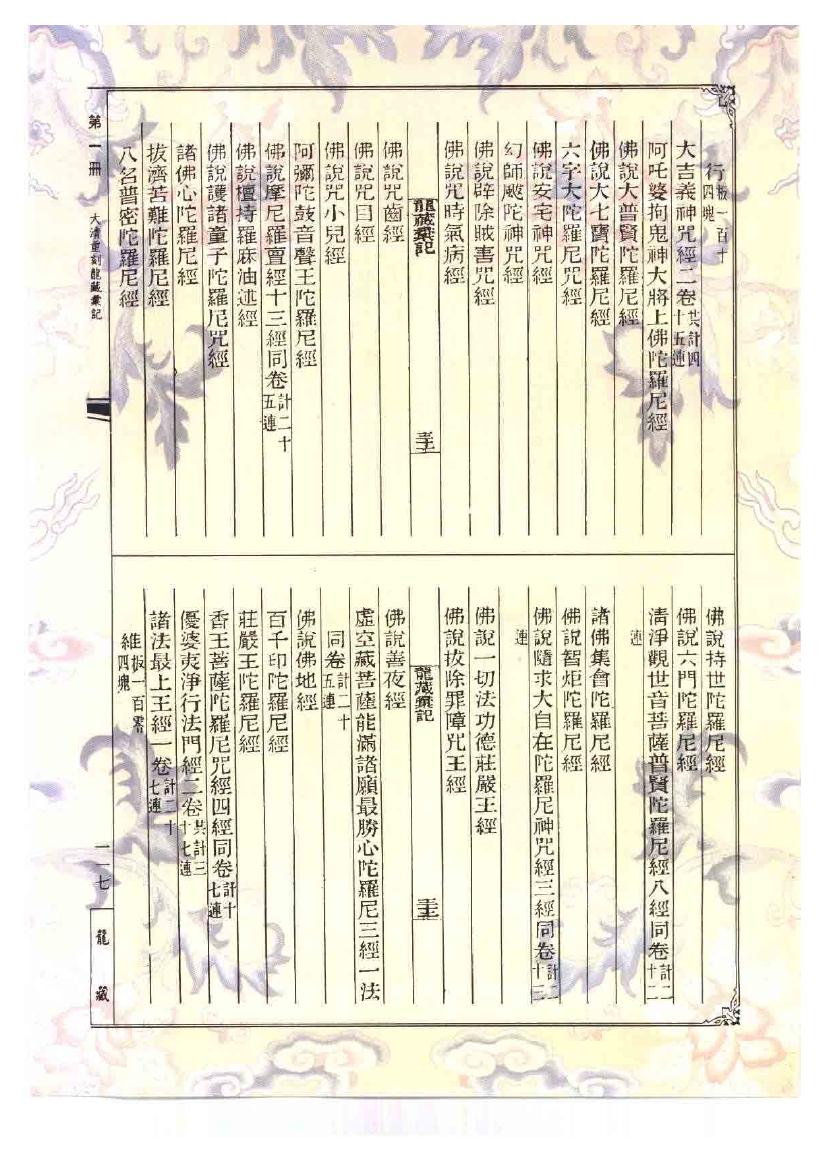 行板一百十四塊
大吉義神咒經二卷共計四十五連
阿吒婆拘鬼神大將上佛陀羅尼經
佛說大普賢陀羅尼經
佛說大七寶陀羅尼經
六字大陀羅尼咒經
佛說安宅神咒經
幻師颰陀神咒經
佛說辟除賊害咒經
佛說咒時氣病經
龍藏彙記
佛說咒齒經
佛說咒目經
佛說咒小兒經
阿彌陀鼓音聲王陀羅尼經
佛說摩尼羅亶經十三經同卷計二十五連
佛說檀持羅麻油述經
佛說護諸童子陀羅尼咒經
諸佛心陀羅尼經
拔濟苦難陀羅尼經
八名普密陀羅尼經
佛說持世陀羅尼經
佛說六門陀羅尼經
清淨觀世音菩薩普賢陀羅尼經八經同卷計二十二
連
諸佛集會陀羅尼經
佛說智炬陀羅尼經
佛說隨求大自在陀羅尼神咒經三經同卷計二十三
連
佛說一切法功德莊嚴王經
佛說拔除罪障咒王經
龍藏彙記
佛說善夜經
虛空藏菩薩能滿諸願最勝心陀羅尼三經一法
同卷計二十五連
佛說佛地經
百千印陀羅尼經
莊嚴王陀羅尼經
香王菩薩陀羅尼咒經四經同卷計十七連
優婆夷淨行法門經二卷共計三十七連
諸法最上王經一卷計二十七連
維板一百零四塊
第一冊
大清重刻龍藏彙記
一一七
龍藏